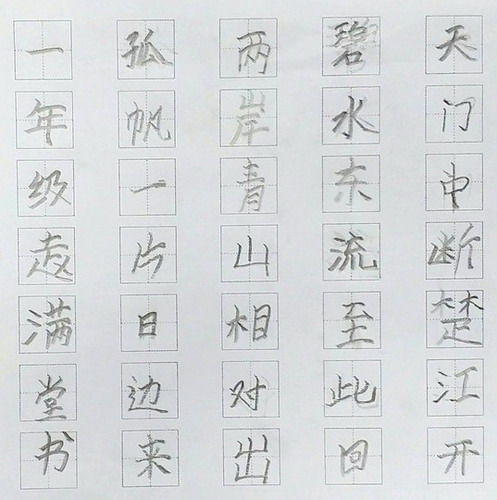 天门中断楚江开
碧水东流至此回
两岸青山相对出
孤帆一片日边来
一年级赵满堂书